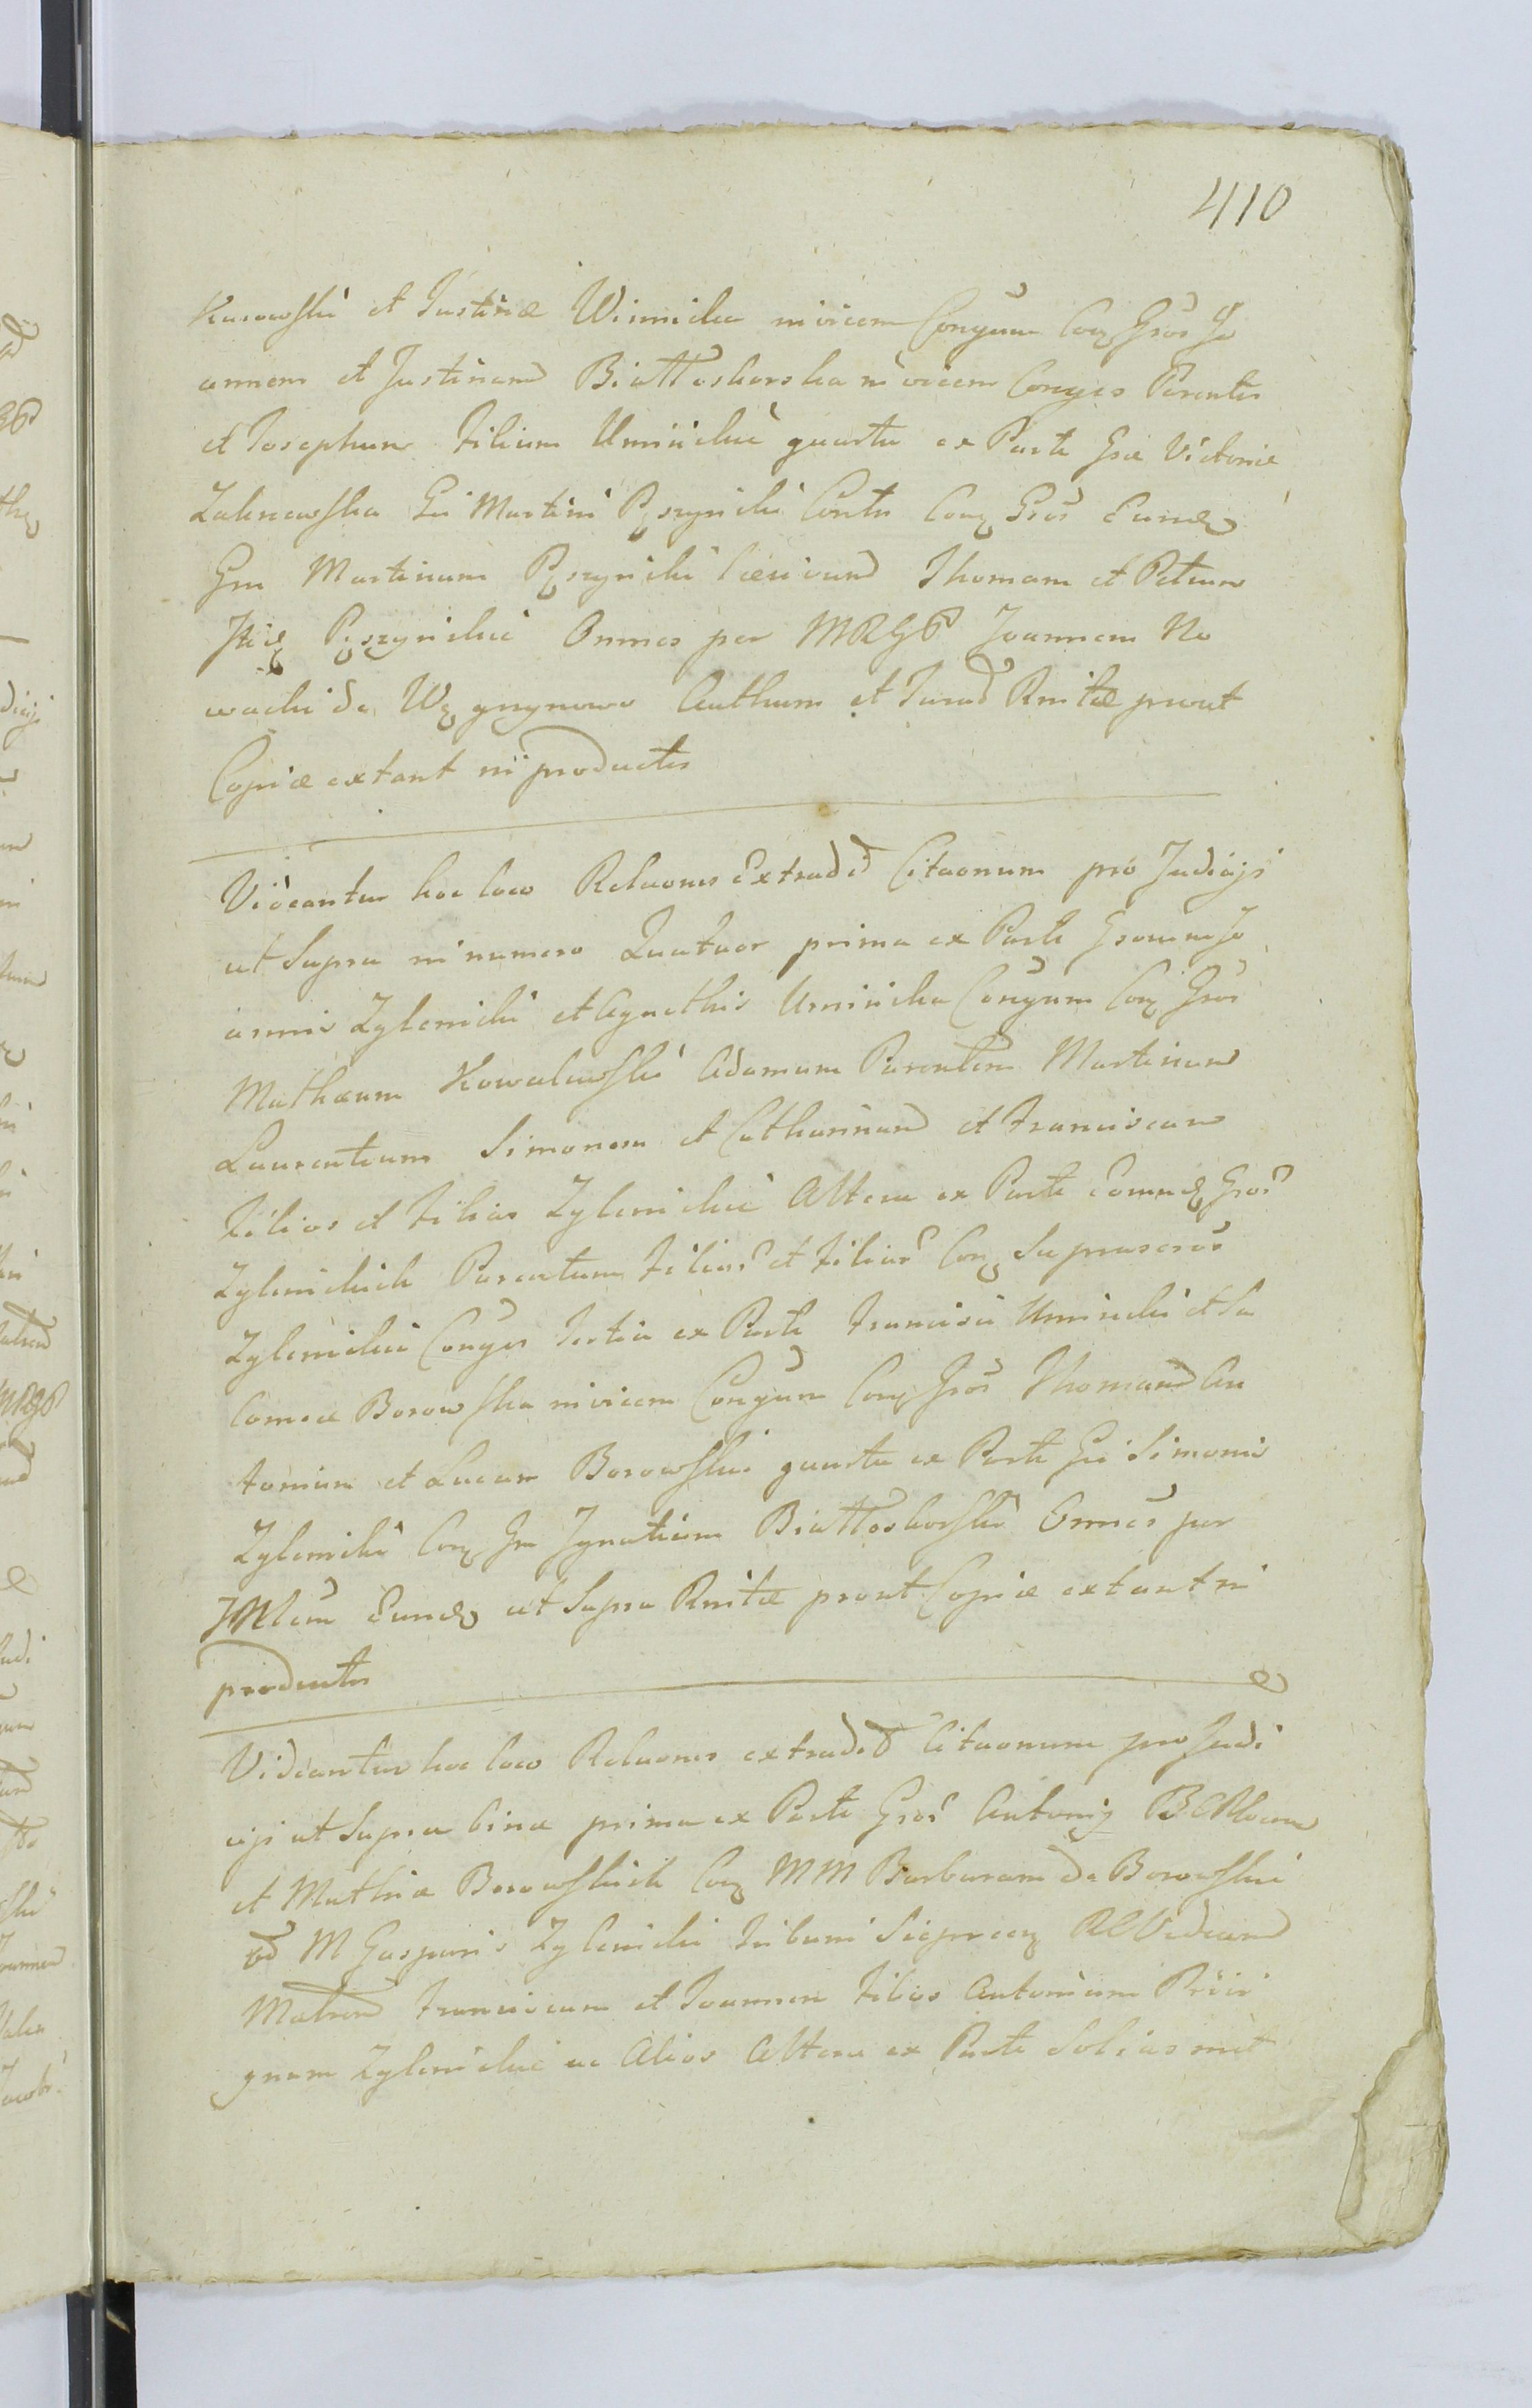 410
Kurowski et Justinæ Winnicka invicem Conyum Cor Gros Jo
annem et Justinam Biattoskorska invicem Conyes Parentes
et Josephum Filium Uminskie quarta ex Parte Gsæ Victoriæ
Zalesewska Gsi Martini Pęszyński Contr Cor Gros Eund
Gsm Martinum Pęszyński Thomam et Petrum
Pęszyńskie Omnes per MRGP Joannem No
wacki de Węgrzynowo Authum et Jurad Rnitæ prout
Copiæ extant in productis
Videantur hoc loco Relaones Extradd Citaonum pro Judicijs
ut Supra in numero Quatuor prima ex Parte Gsorum Jo
annis Zylenski et Agnethis Uminska Conyum Cor Gros
Mathæum Kowalewski Adamum Parentem Martinum
Laurentium Simonem et Catharinam et Franciscam
Filios et Filias Zylenskie Altera ex Parte Eorund Gros
Zylenskich Parentum Filior et Filiar Cor Suprascros
Zylenskie Conyes Tertia ex Parte Francisci Uminski et Sa
lomeæ Borowska invicem Conyum Cor Gros Thomam An
tonium et Lucam Borowskie quarta ex Parte Gsi Simonis
Zylenski Cor Gsm Ignatium Biattoskorski Omnes per
Eund ut Supra Rnitæ prout Copiæ extant in
productis
Videantur hoc loco Relaones extradd Citaonum pro Judi
cijs ut Supra binæ prima ex Parte Gror Antonij
et Mathiæ Borowskich Cor MM Barbaram de Borowskie
M Gasparis Zylenski Tribuni Sieprcen Viduam
Matrem Franciscum et Joannem Filios Antonium Privi
gnum Zylenskie ac Alios Altera ex Parte Solius met